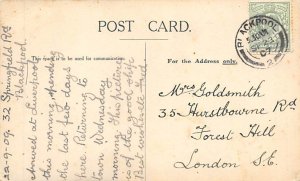 POST CARD.
This space is to be used for communication.
22-9-09. 32 Springfield Rd
Blackpool.
Arrived at Liverpool
this morning spending
the last few days
here. Returning to
town Wednesday
morning. This picture
is of the good ship
Best wishes all Fred
BLACKPOOL
2
Mrs Goldsmith
35 Hurstbourne Rd
Forest Hill
London S.E.